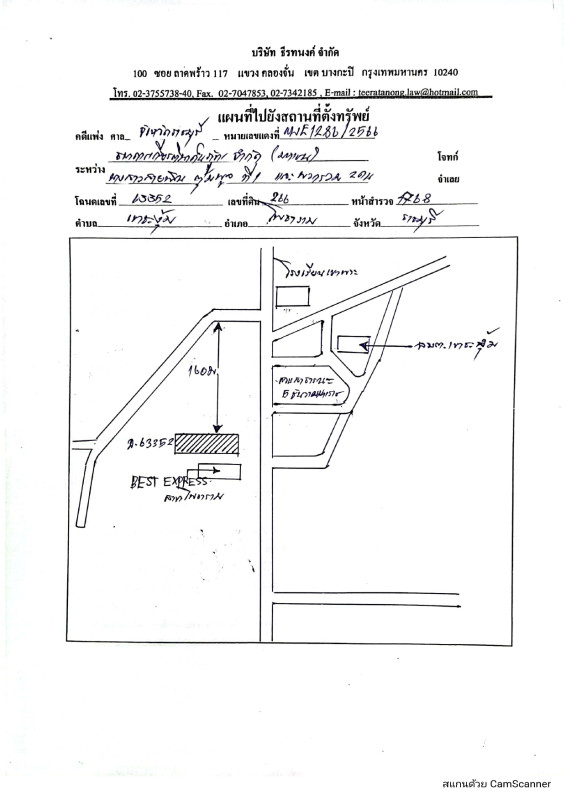 บริษัท ธีรทนงค์ จำกัด
100 ซอย ลาดพร้าว 117 แขวง คลองจั่น เขต บางกะปิ กรุงเทพมหานคร 10240
โทร. 02-3755738-40, Fax. 02-7047853, 02-7342185 , E-mail : teeratanong.law@hotmail.com
แผนที่ไปยังสถานที่ตั้งทรัพย์
คดีแพ่ง ศาล จังหวัดราชบุรี หมายเลขแดงที่ ผบE1286/2566
ธนาคารเกียรตินาคินภัทร จำกัด (มหาชน) โจทก์
ระหว่าง
ที่ 1 และพวกรวม 2 คน จำเลย
โฉนดเลขที่ 63352 เลขที่ดิน 266 หน้าสำรวจ 1768
ตำบล เขาชะงุ้ม อำเภอ โพธาราม จังหวัด ราชบุรี
โรงเรียน
อบต.เขาชะงุ้ม
160ม.
สวนสาธารณะ
5 ธันวามหาราช
ฉ.63352
BEST EXPRESS
สาขาโพธาราม
สแกนด้วย CamScanner